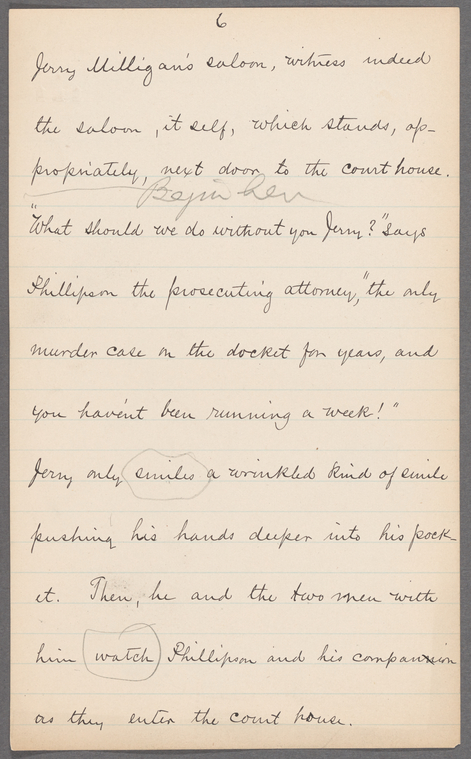 6
Jerry Milligan's saloon, witness indeed
the saloon, it self, which stands, ap-
propriately, next door to the court house.
Begin here
"What should we do without you Jerry?" says
Phillipson the prosecuting attorney, "the only
murder case on the docket for years, and
you have'nt been running a week!"
Jerry only smiles a wrinkled kind of smile
pushing his hands deeper into his pock-
et. Then, he and the two men with
him watch Phillipson and his companion
as they enter the court house.